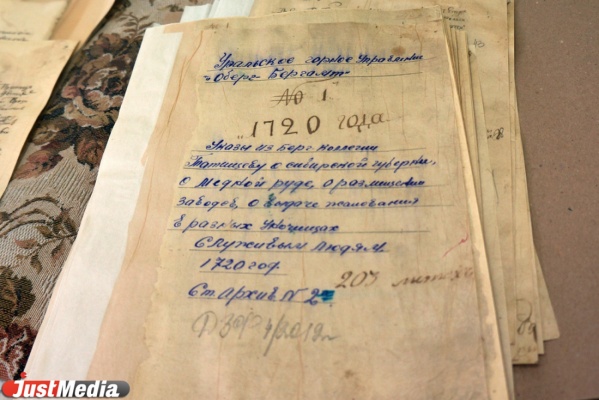 Уральское горное Управление
"Обер-Бергамт"
№ 1
"1720 года
Указы из Берг Коллегии
Татищеву о сибирской губернии,
о медной руде, о размножении
заводов, о выдаче жалования
в разных
служивым людям.
1720 год
203 листах
Ст. Архив № 2
JustMedia